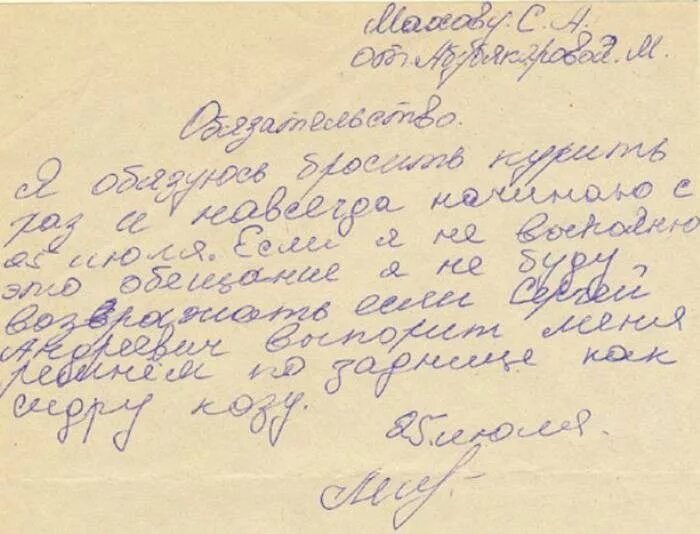 Махову. С. А.
от. Абубякяровой. М.
Обязательство.
Я обязуюсь бросить курить
раз и навсегда начинаю с
25 июля. Если я не выполню
это обещание я не буду
возвражать если Сергей
Андреевич выпорит меня
ремнём по заднице как
сидру козу.
25. июля.